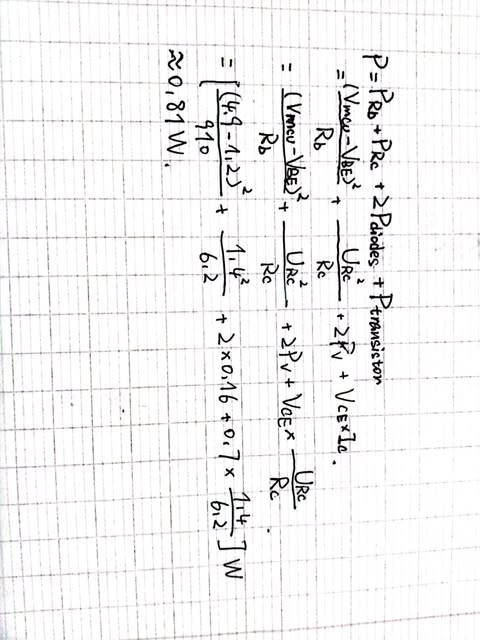 P = P_Rb + P_Rc + 2P_diodes + P_transistor
= (V_mcu - V_BE)² / R_b + U_Rc² / R_c + 2P_V + V_CE × I_c.
= (V_mcu - V_BE)² / R_b + U_Rc² / R_c + 2P_V + V_CE × U_Rc / R_c
= [ (4.9 - 1.2)² / 910 + 1.4² / 6.2 + 2×0.16 + 0.7 × 1.4 / 6.2 ] W
≈ 0.81 W.